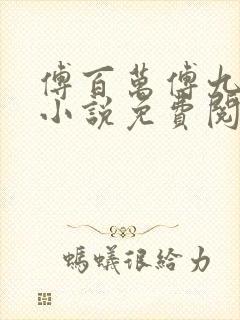 傅百萬傅九
小說免費閱
螞蟻很給力